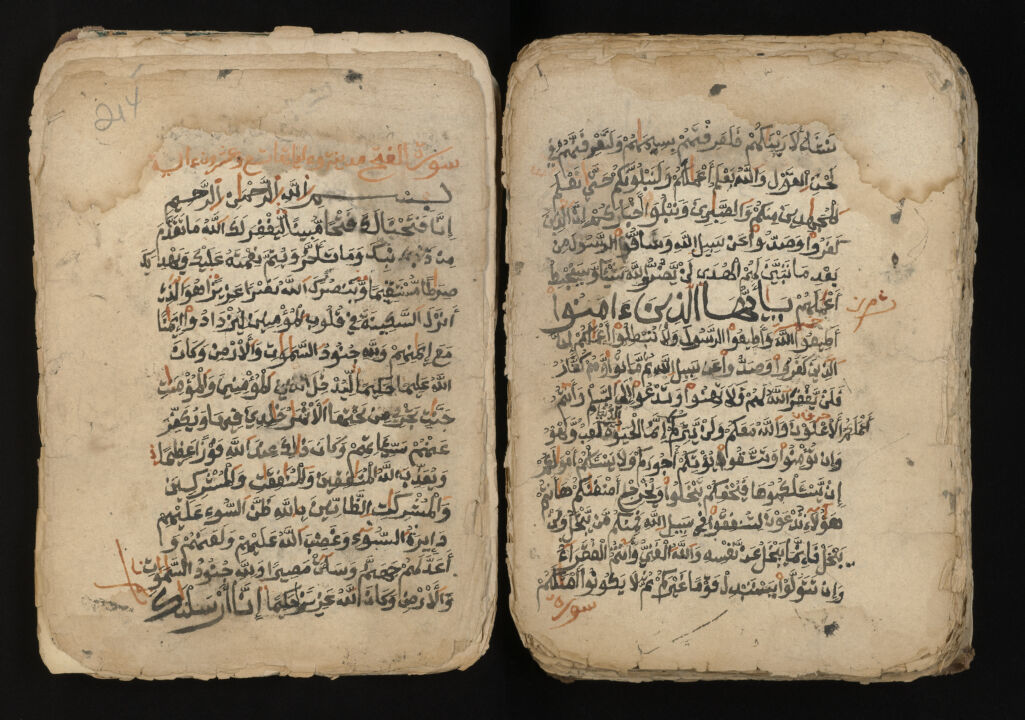 نشاء لارينكهم فلعرفتهم بسيمهم ولتعرفنهم في
لحن القول والله يعلم أعملكم ولنبلونكم حتى نعلم
المجهدين منكم والصبرين ونبلوا أخباركم إن الذين
كفروا وصدوا عن سبيل الله وشاقوا الرسول من
بعد ما تبين لهم الهدى لن يضروا الله شيئا وسيحبط
أعملهم يأيها الذين ءامنوا
أطيعوا الله وأطيعوا الرسول ولا تبطلوا أعملكم إن
الذين كفروا وصدوا عن سبيل الله ثم ماتوا وهم كفار
فلن يغفر الله لهم ولا تهنوا وتدعوا إلى السلم وأنتم
الأعلون والله معكم ولن يتركم إنما الحيوة لعب ولهو
وإن تؤمنوا وتتقوا يؤتكم أجوركم ولا يسئلكم أمولكم
إن يسئلكموها فيحفكم تبخلوا ويخرج أضغنكم هانتم
هؤلاء تدعون لتنفقوا في سبيل الله فمنكم من يبخل ومن
يبخل فإنما يبخل عن نفسه والله الغني وأنتم الفقراء
وإن تتولوا يستبدل قوما غيركم ثم لا يكونوا أمثلكم
سورة
214
سورة الفتح مدنية وءاياتها تسع وعشرون ءاية
بسم الله الرحمن الرحيم
إنا فتحنا لك فتحا مبينا ليغفر لك الله ما تقدم
من ذنبك وما تأخر ويتم نعمته عليك ويهديك
صرطا مستقيما وينصرك الله نصرا عزيزا هو الذي
أنزل السكينة في قلوب المؤمنين ليزدادوا إيمنا
مع إيمنهم ولله جنود السموت والأرض وكان
الله عليما حكيما ليدخل المؤمنين والمؤمنت
جنت تجري من تحتها الأنهر خلدين فيها ويكفر
عنهم سيئاتهم وكان ذلك عند الله فوزا عظيما
ويعذب الله المنفقين والمنفقت والمشركين
والمشركت الظانين بالله ظن السوء عليهم
دايرة السوء وغضب الله عليهم ولعنهم و
أعد لهم جهنم وساءت مصيرا ولله جنود السموت
والأرض وكان الله عزيزا حكيما إنا أرسلنك